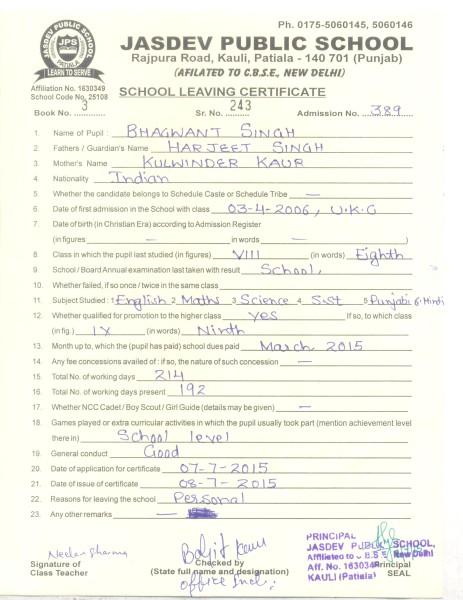 Ph. 0175-5060145, 5060146
JASDEV PUBLIC SCHOOL
JPS
PATIALA
LEARN TO SERVE
JASDEV PUBLIC SCHOOL
Rajpura Road, Kauli, Patiala - 140 701 (Punjab)
(AFILATED TO C.B.S.E., NEW DELHI)
Affiliation No. 1630349
School Code No. 25108
SCHOOL LEAVING CERTIFICATE
Book No. 3 Sr. No. 243 Admission No. 389
1. Name of Pupil : BHAGWANT SINGH
2. Fathers / Guardian's Name HARJEET SINGH
3. Mother's Name KULWINDER KAUR
4. Nationality Indian
5. Whether the candidate belongs to Schedule Caste or Schedule Tribe —
6. Date of first admission in the School with class 03-4-2006, U.K.G
7. Date of birth (in Christian Era) according to Admission Register
(in figures — in words — )
8. Class in which the pupil last studied (in figures) VIII (in words) Eighth
9. School / Board Annual examination last taken with result School,
10. Whether failed, if so once / twice in the same class
11. Subject Studied : 1 English 2 Maths 3 Science 4 S.st 5 Punjabi 6. Hindi
12. Whether qualified for promotion to the higher class yes If so, to which class
(in fig.) IX (in words) Ninth
13. Month up to, which the (pupil has paid) school dues paid March 2015
14. Any fee concessions availed of : if so, the nature of such concession —
15. Total No. of working days 214
16. Total No. of working days present 192
17. Whether NCC Cadet / Boy Scout / Girl Guide (details may be given) —
18. Games played or extra curricular activities in which the pupil usually took part (mention achievement level
there in) School level
19. General conduct Good
20. Date of application for certificate 07-7-2015
21. Date of issue of certificate 08-7-2015
22. Reasons for leaving the school Personal
23. Any other remarks —
Neelam Sharma
Signature of
Class Teacher
Baljit Kaur
Checked by
(State full name and designation)
Office Incl.
PRINCIPAL
JASDEV PUBLIC SCHOOL,
Affiliated to C.B.S.E. New Delhi
Aff. No. 1630349 Principal
KAULI (Patiala) SEAL